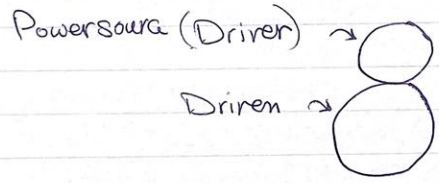 Powersoura (Driver)
Driven